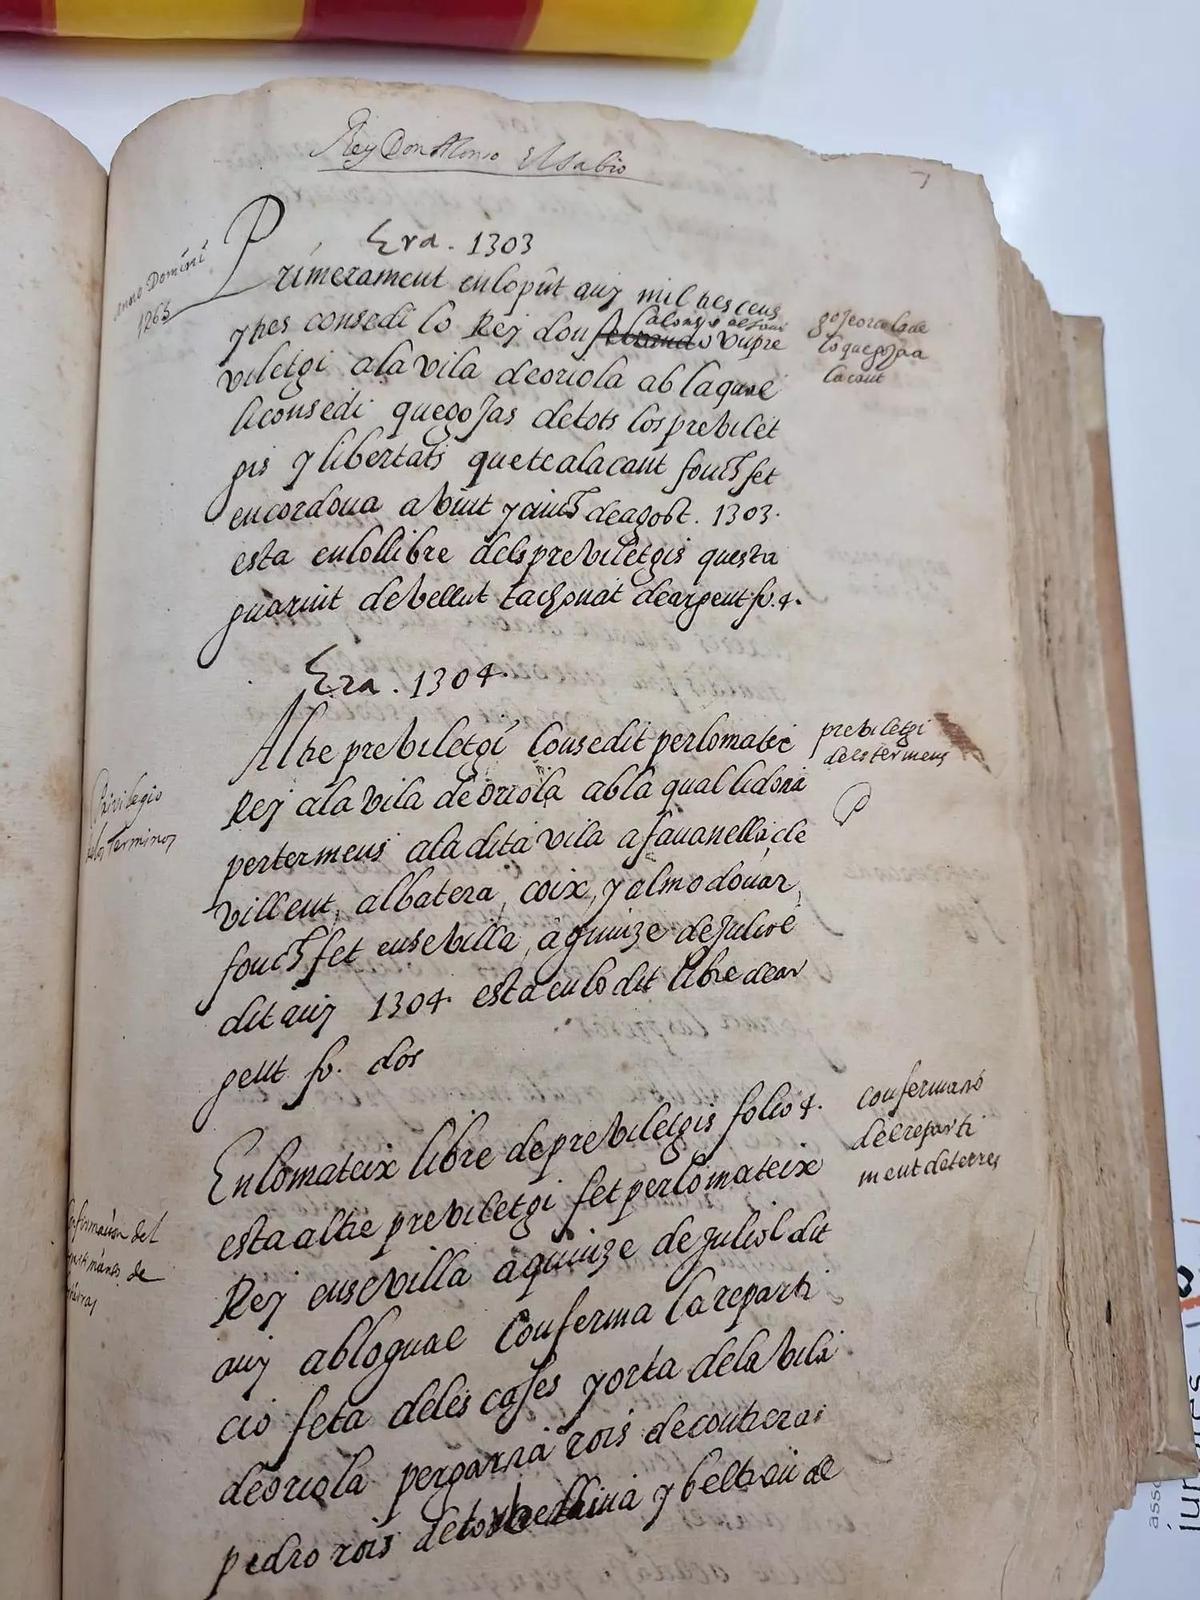 Rey Don Alonso El Sabio
7
Era. 1303
Anno Domini
1265
Primerament en lo pnt any mil tres cens
y tres consedi lo Rey don fernando alonso vn pre
viletgi a la vila de oriola ab la qual
li consedi que gojas de tots los previlet
gis y libertats que te alacant fonch fet
en cordoua a vint y cinch de agost. 1303.
esta en lo llibre dels previletgis questa
guarnit de vellut tachonat de argent fo. 4.
goje oriola de
lo que goja
lacant
Era. 1304.
Altre previletgi consedit per lo mateix
Rey a la vila de oriola ab la qual li dona
per termens a la dita vila a fauanella, cle
villent, albatera, coix, y almodouar,
fonch fet en sevilla, a quinze de juliol
dit any 1304. esta en lo dit libre de ar
gent fo. dos
previletgi
dels termens
Privilegio
de los terminos
En lo mateix libre de previletgis folio 4.
esta altre previletgi fet per lo mateix
Rey en sevilla a quinze de juliol dit
any ab lo qual conferma la reparti
cio feta de les cases y orta de la vila
de oriola per garsia rois de contreras
pedro rois de y beltran de
confermasio
de el reparti
ment de terres